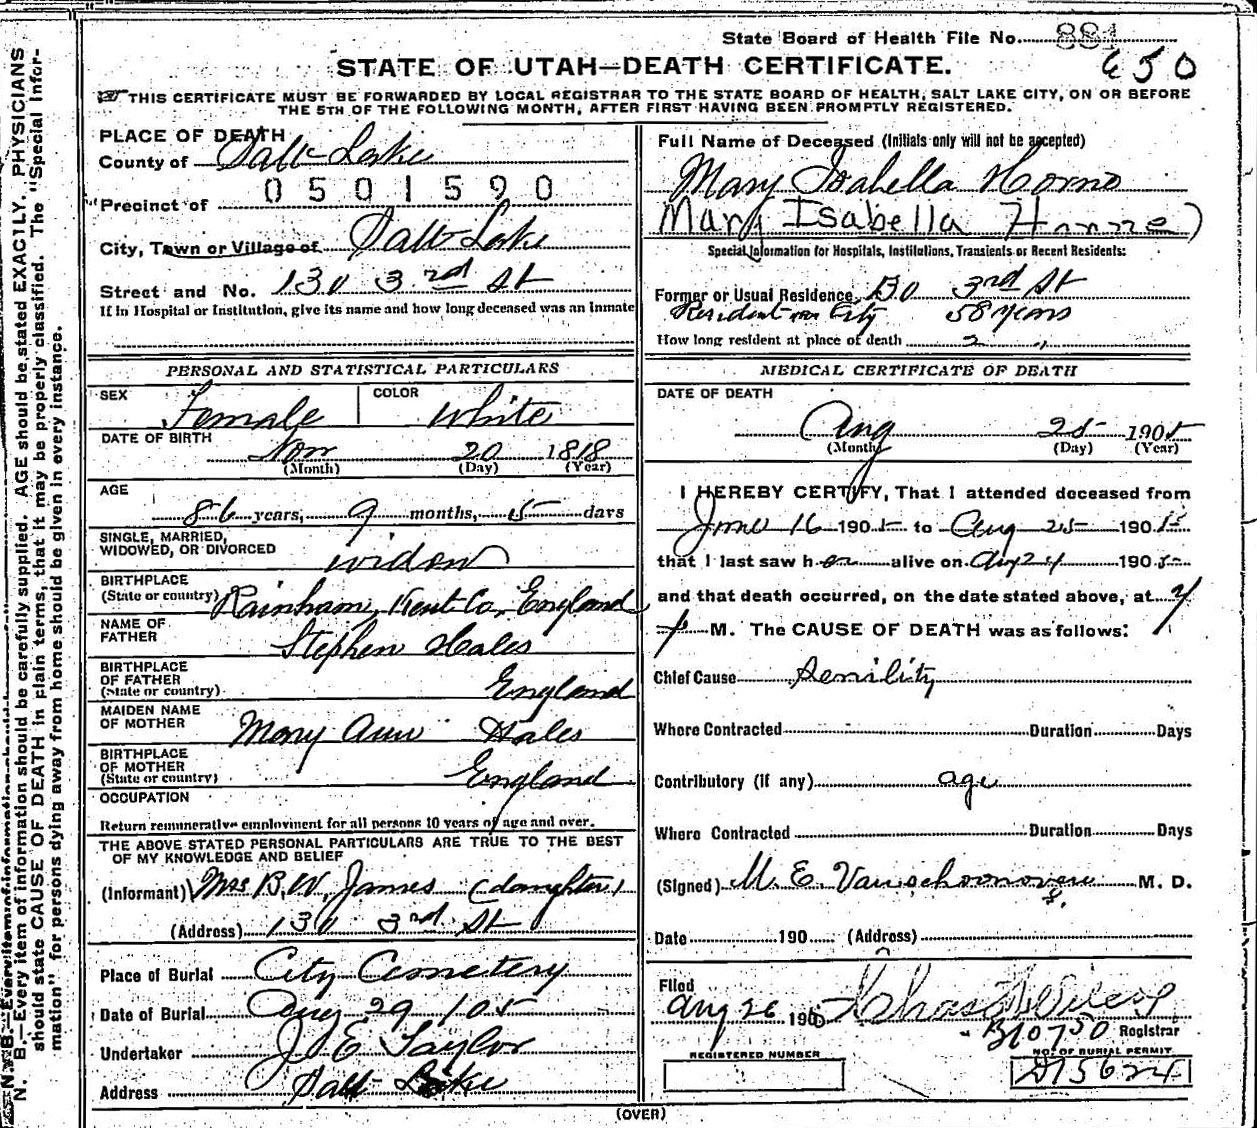 State Board of Health File No. 881
650
STATE OF UTAH—DEATH CERTIFICATE.
THIS CERTIFICATE MUST BE FORWARDED BY LOCAL REGISTRAR TO THE STATE BOARD OF HEALTH, SALT LAKE CITY, ON OR BEFORE
THE 5TH OF THE FOLLOWING MONTH, AFTER FIRST HAVING BEEN PROMPTLY REGISTERED.
PLACE OF DEATH
County of Salt Lake
0501590
Precinct of
City, Town or Village of Salt Lake
Street and No. 130 3rd St
If in Hospital or Institution, give its name and how long deceased was an Inmate
PERSONAL AND STATISTICAL PARTICULARS
SEX Female COLOR White
DATE OF BIRTH Nov 20 1818
(Month) (Day) (Year)
AGE
86 years, 9 months, 5 days
SINGLE, MARRIED,
WIDOWED, OR DIVORCED widow
BIRTHPLACE
(State or country) Rainham, Kent Co, England
NAME OF
FATHER Stephen Hales
BIRTHPLACE
OF FATHER
(State or country) England
MAIDEN NAME
OF MOTHER Mary Ann Hales
BIRTHPLACE
OF MOTHER
(State or country) England
OCCUPATION
Return remunerative employment for all persons 10 years of age and over.
THE ABOVE STATED PERSONAL PARTICULARS ARE TRUE TO THE BEST
OF MY KNOWLEDGE AND BELIEF
(Informant) Mrs B. W. James (daughter)
(Address) 130 3rd St
Place of Burial City Cemetery
Date of Burial Aug 29 105
Undertaker J E Taylor
Address Salt Lake
Full Name of Deceased (Initials only will not be accepted)
Mary Isabella Horne
Mary Isabella Horne)
Special Information for Hospitals, Institutions, Transients or Recent Residents:
Former or Usual Residence 130 3rd St
Resident City 58 years
How long resident at place of death 2 "
MEDICAL CERTIFICATE OF DEATH
DATE OF DEATH
Aug 25 1905
(Month) (Day) (Year)
I HEREBY CERTIFY, That I attended deceased from
June 16 1905 to Aug 25 1905
that I last saw her alive on Aug 24 1905
and that death occurred, on the date stated above, at
M. The CAUSE OF DEATH was as follows:
Chief Cause Senility
Where Contracted Duration Days
Contributory (if any) age
Where Contracted Duration Days
(Signed) M. E. Van Schoonoven M. D.
Date 190 (Address)
Filed
Aug 26 1905 Chas
B10750 Registrar
REGISTERED NUMBER
NO. OF BURIAL PERMIT
D15624
(OVER)
N. B.—Every item of information should be carefully supplied. AGE should be stated EXACTLY. PHYSICIANS
should state CAUSE OF DEATH in plain terms, that it may be properly classified. The "Special Infor-
mation" for persons dying away from home should be given in every instance.